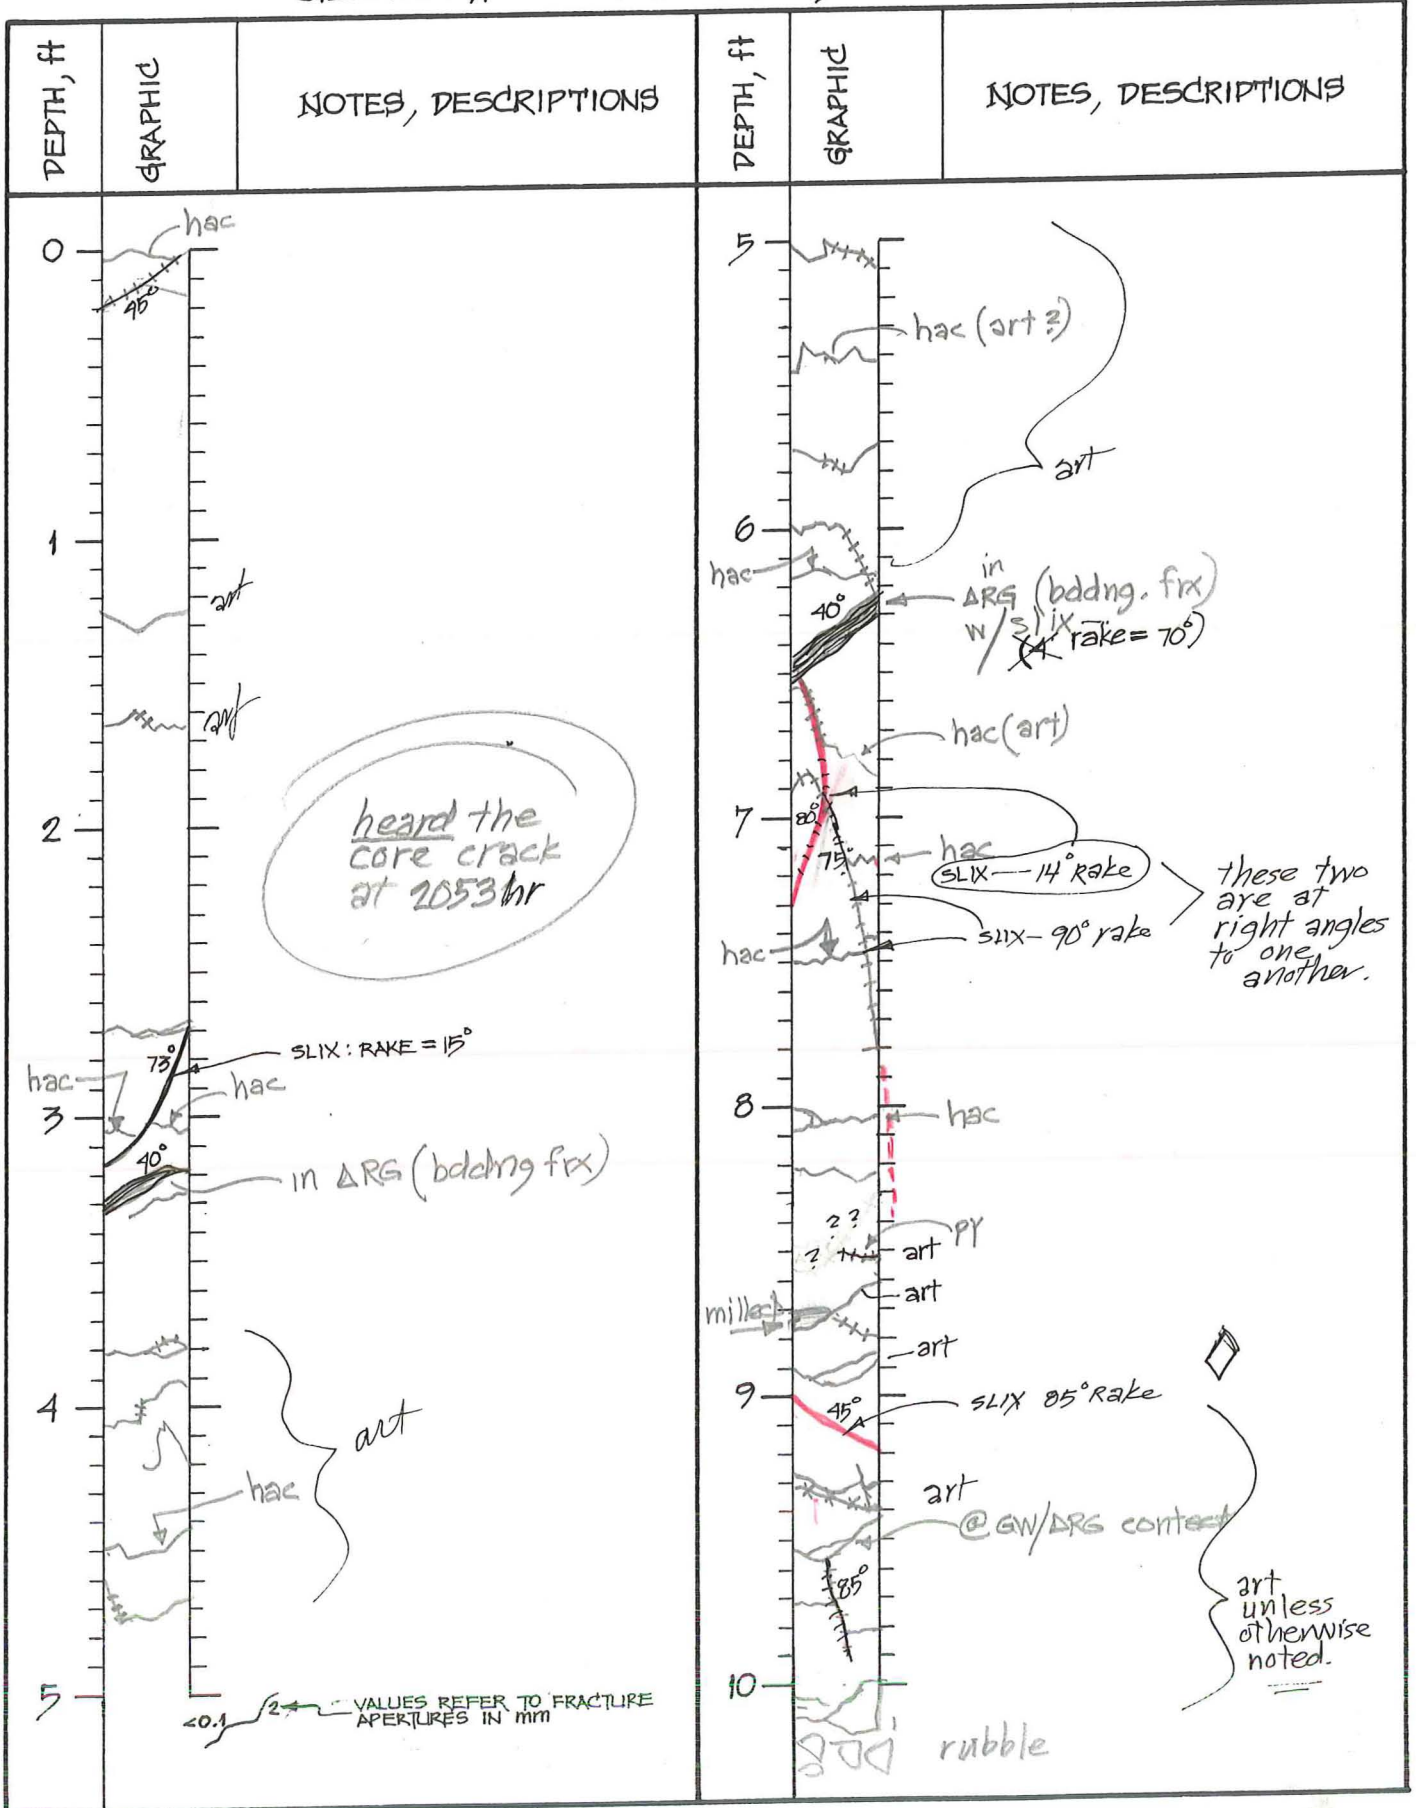 DEPTH, ft
GRAPHIC
NOTES, DESCRIPTIONS
hac
0
45°
1
art
art
heard the
core crack
at 2053 hr
2
73°
SLIX: RAKE = 15°
hac
hac
3
40°
in ARG (bddng frx)
4
art
hac
5
<0.1
2
VALUES REFER TO FRACTURE
APERTURES IN mm
DEPTH, ft
GRAPHIC
NOTES, DESCRIPTIONS
5
hac (art?)
art
6
hac
40°
in
ARG (bddng. frx)
w/ slix
rake = 70°)
hac (art)
7
80°
75°
hac
SLIX — 14° Rake
SLIX - 90° rake
these two
are at
right angles
to one
another.
hac
8
hac
? ?
?
PY
art
art
milled
art
9
45°
SLIX 85° Rake
art
@ GW/ARG contact
85°
art
unless
otherwise
noted.
10
rubble